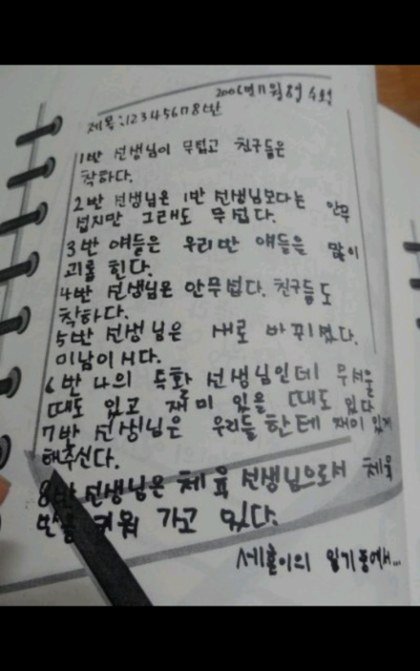 2006년 11월 8일 수요일
제목:12345678반
1반 선생님이 무섭고 친구들은
착하다.
2반 선생님은 1반 선생님보다는 안무
섭지만 그래도 무섭다.
3반 얘들은 우리반 얘들을 많이
괴롭 힌다.
4반 선생님은 안무섭다. 친구들도
착하다.
5반 선생님은 새로 바뀌셨다.
미남이시다.
6반 나의 독화 선생님인데 무서울
때도 있고 재미 있을 때도 있다
7반 선생님은 우리들한테 재미있게
해주신다.
8반 선생님은 체육 선생님으로서 체육
반을 키워 가고 있다.
세훈이의 일기중에서...